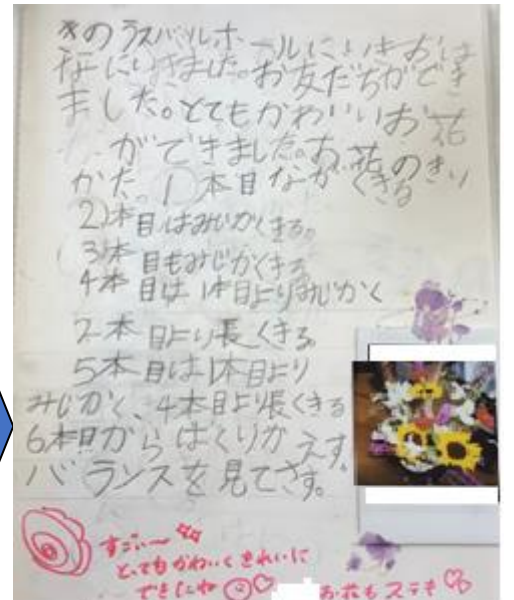 きのうスバルホールにいきお
花にいきました。お友だちができ
ました。とてもかわいいお花
ができました。お花のきり
かた。1)本目ながくきる
2)本目はみじかくきる。
3)本目もみじかくきる
4本目は1本目よりみじかく
2本目より長くきる
5本目は1本目より
みじかく、4本目より長くきる
6本目からはくりかえす。
バランスを見てさす。
すごい〜
とってもかわいくきれいに
できたね
お花もステキ